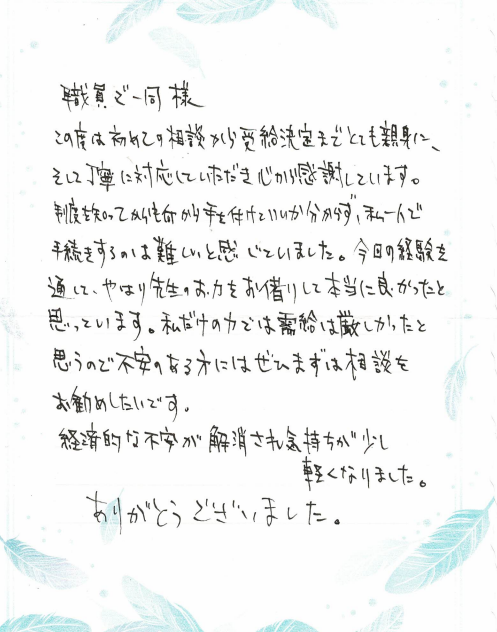 職員ご一同様
この度は初めての相談から受給決定までとても親身に、
そして丁寧に対応していただき心から感謝しています。
制度を知ってからも何から手を付けていいか分からず、私一人で
手続きをするのは難しいと感じていました。今回の経験を
通して、やはり先生のお力をお借りして本当に良かったと
思っています。私だけの力では需給は厳しかったと
思うので不安のある方にはぜひまずは相談を
お勧めしたいです。
経済的な不安が解消され気持ちが少し
軽くなりました。
ありがとうございました。